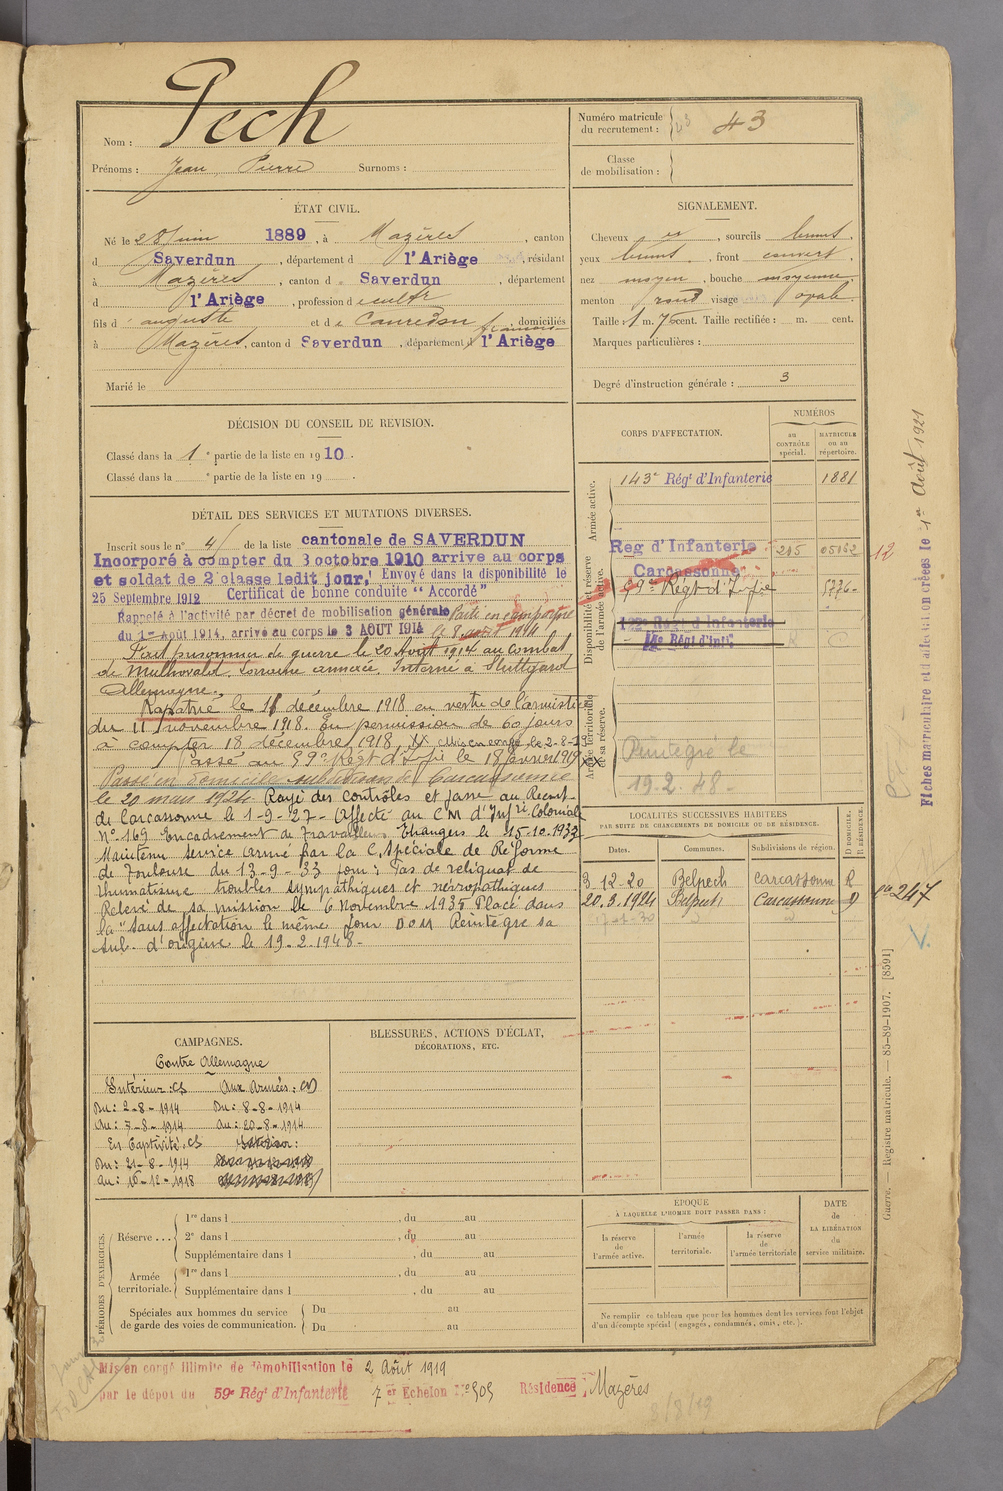 Nom : Pech
Prénoms : Jean, Pierre Surnoms :
Numéro matricule du recrutement : 43
Classe de mobilisation :
ÉTAT CIVIL.
Né le 28 Juin 1889, à Mazères, canton
d Saverdun, département d l'Ariège, résidant
à Mazères, canton d Saverdun, département
d l'Ariège, profession d cultr
fils d auguste et de Cauredon françoise domiciliés
à Mazères, canton d Saverdun, département d l'Ariège
Marié le
SIGNALEMENT.
Cheveux et, sourcils bruns,
yeux bruns, front couvert,
nez moyen, bouche moyenne,
menton rond visage ovale.
Taille : 1 m. 76 cent. Taille rectifiée : m. cent.
Marques particulières :
Degré d'instruction générale : 3
DÉCISION DU CONSEIL DE REVISION.
Classé dans la 1e partie de la liste en 1910.
Classé dans la e partie de la liste en 19 .
DÉTAIL DES SERVICES ET MUTATIONS DIVERSES.
Inscrit sous le n° 4 de la liste cantonale de SAVERDUN
Incorporé à compter du 3 octobre 1910 arrivé au corps
et soldat de 2e classe ledit jour. Envoyé dans la disponibilité le
25 Septembre 1912 Certificat de bonne conduite "Accordé"
Rappelé à l'activité par décret de mobilisation générale Parti en campagne
du 1er Août 1914, arrivé au corps le 3 AOUT 1914 le 8 août 1914
Fait prisonnier de guerre le 20 Août 1914 au Combat
de Mulhwald. Lorraine annexée. Interné à Stuttgard
Allemagne.
Rapatrié le 16 décembre 1918 en vertu de l'armistice
du 11 novembre 1918. En permission de 60 jours
à compter 18 décembre 1918, XX Mis en congé le 2-8-19
Passé au 59e Régt d'Infie le 18 février 1919 XX
Passé en domicile subdivision de Carcassonne
le 20 mars 1924. Rayé des contrôles et passé au Recrut
de Carcassonne le 1-9-27 - Affecté au CM d'Infie Coloniale
N° 169 Encadrement de Travailleurs Etrangers le 15.10.1933
Maintenu Service Armé par la C. Spéciale de Réforme
de Toulouse du 13-9-33 pour : Pas de reliquat de
rhumatisme troubles sympathiques et névropathiques
Relevé de sa mission le 6 Novembre 1935 Placé dans
la "Sans affectation le même jour DOM Réintègre sa
sub. d'origine le 19.2.1948-
CORPS D'AFFECTATION.
NUMÉROS
au CONTRÔLE spécial.
MATRICULE ou au répertoire.
Armée active.
143e Régt d'Infanterie 1881
Disponibilité et réserve de l'armée active.
Reg d'Infanterie 215 05162
Carcassonne
59e Regt d'Infie 5776
122e Régt d'Infanterie
14e Régt d'Infie
Armée territoriale et sa réserve.
Réintégré le
19.2.48-
LOCALITÉS SUCCESSIVES HABITÉES
PAR SUITE DE CHANGEMENTS DE DOMICILE OU DE RÉSIDENCE.
Dates. Communes. Subdivisions de région. D DOMICILE. R RÉSIDENCE.
3.12.20 Belpech Carcassonne R
20.3.1924 Belpech Carcassonne D
CAMPAGNES.
Contre Allemagne
Intérieur : CS Aux Armées : CD
Du : 2-8-1914 Du : 8-8-1914
Au : 7-8-1914 Au : 20-8-1914
En Captivité : CS Intérieur :
Du : 21-8-1914
Au : 16-12-1918
BLESSURES, ACTIONS D'ÉCLAT,
DÉCORATIONS, ETC.
PÉRIODES D'EXERCICES.
Réserve ... 1re dans l , du au
2e dans l , du au
Supplémentaire dans l , du au
Armée territoriale. 1re dans l , du au
Supplémentaire dans l , du au
Spéciales aux hommes du service de garde des voies de communication. Du au
Du au
ÉPOQUE
À LAQUELLE L'HOMME DOIT PASSER DANS :
la réserve de l'armée active.
l'armée territoriale.
la réserve de l'armée territoriale
DATE de LA LIBÉRATION du service militaire.
Ne remplir ce tableau que pour les hommes dont les services font l'objet
d'un décompte spécial (engagés, condamnés, omis, etc.).
Mis en congé illimité de démobilisation le 2 Août 1919
par le dépôt du 59e Régt d'Infanterie 7er Echelon N° 909 Résidence Mazères
8/8/19
Fiches matriculaire et d'affectation créées le 1er Août 1921
12
247
V.
Guerre. — Registre matricule. — 85-89-1907. [8591]